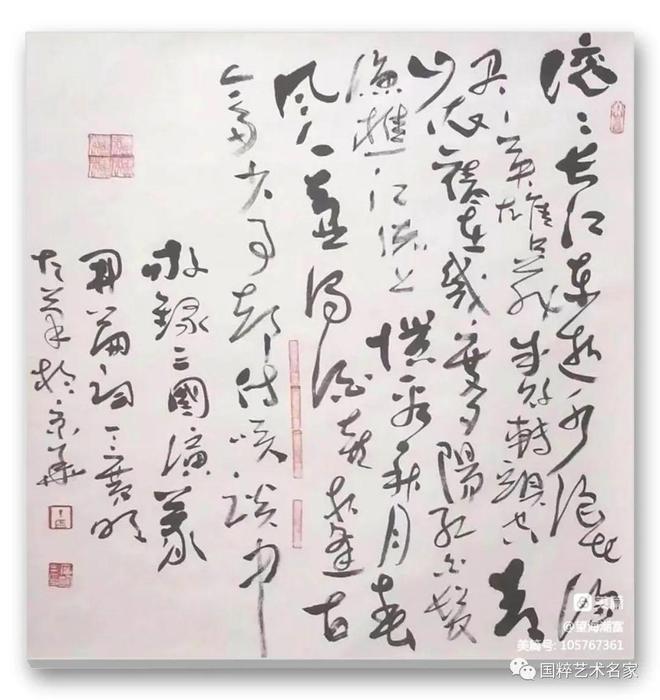 滚〻长江东逝水浪花淘
尽英雄是非成败转頭空青
山依旧在几度夕陽红白髮
渔樵江渚上惯看秋月春
风一壶浊酒喜相逢古
今多少事都付笑谈中
敬録三國演義
開篇词
於京華
美篇
@望海潮富
美篇号: 105767361
国粹艺术名家